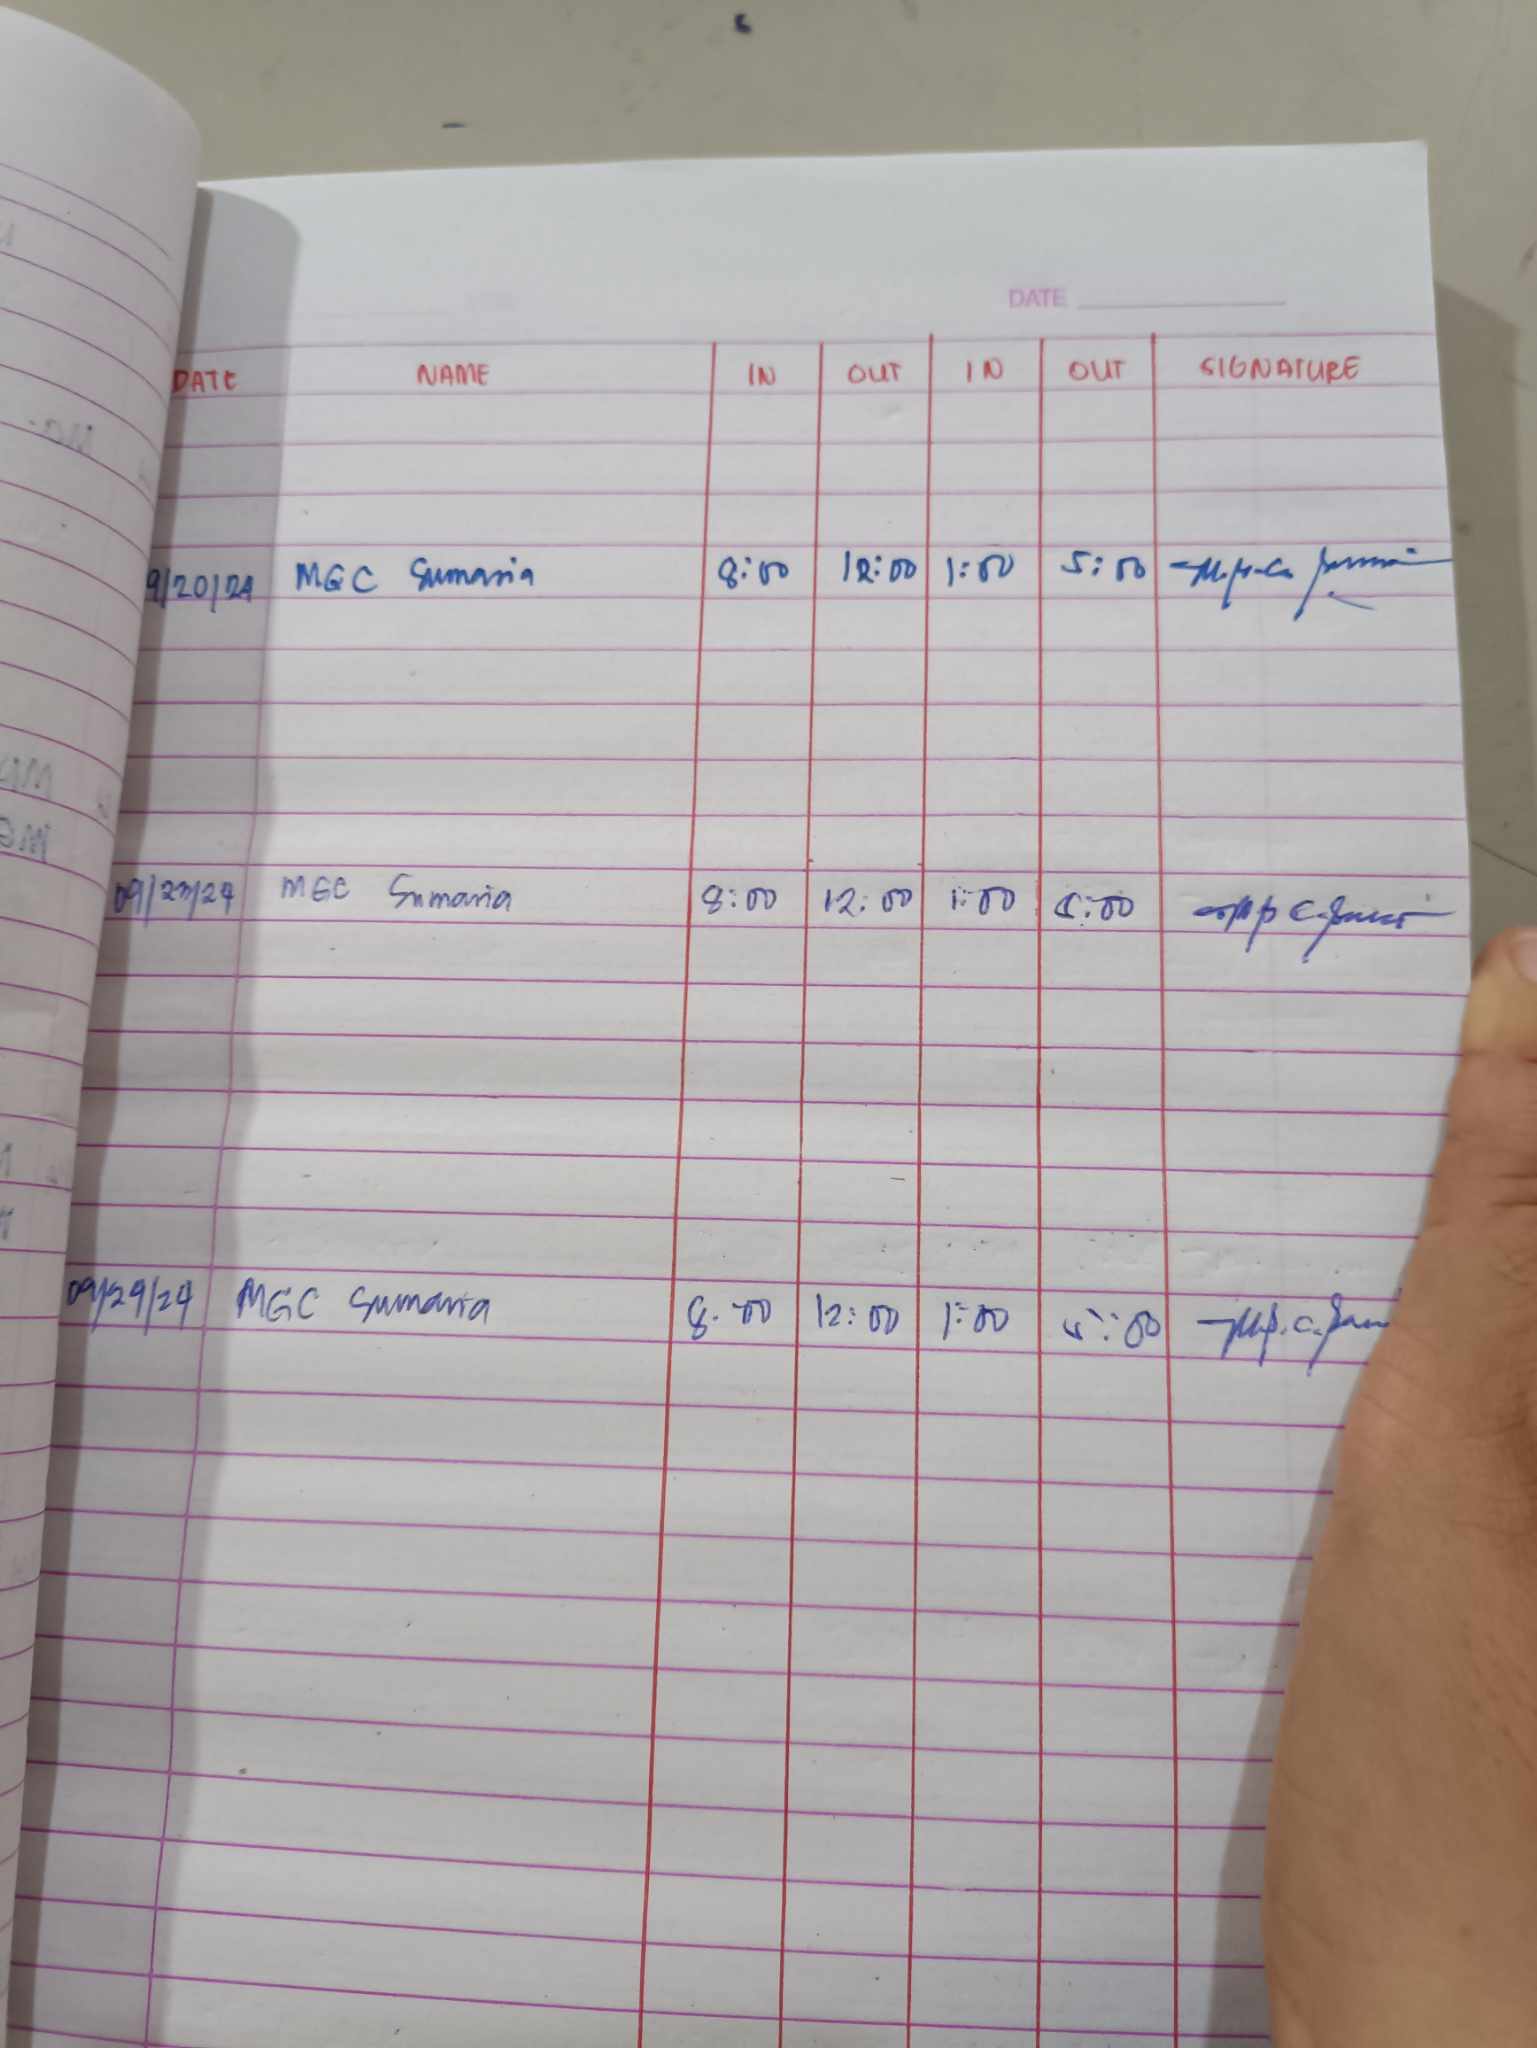 DATE
DATE NAME IN OUT IN OUT SIGNATURE
9/20/24 MGC Sumaria 8:00 12:00 1:00 5:00
09/23/24 MGC Sumaria 8:00 12:00 1:00 5:00
09/24/24 MGC Sumaria 8:00 12:00 1:00 5:00